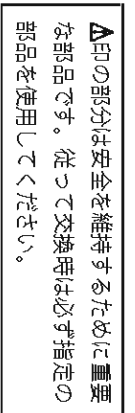 ⚠印の部分は安全を維持するために重要
な部品です。従って交換時は必ず指定の
部品を使用してください。